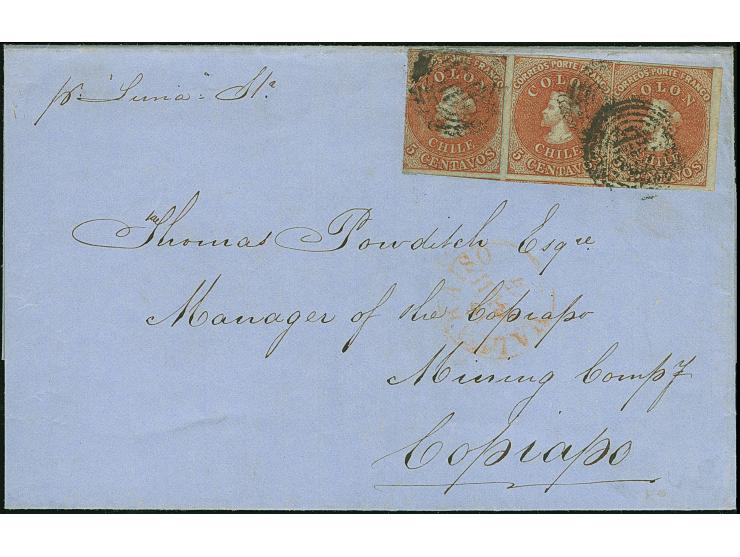 pr. "Luna" Str
CORREOS PORTE FRANCO
COLON
CHILE
5 CENTAVOS
CORREOS PORTE FRANCO
COLON
CHILE
5 CENTAVOS
CORREOS PORTE FRANCO
COLON
CHILE
CENTAVOS
Thomas Powditch Esqre
Manager of the Copiapo
Mining Compy
Copiapo
VALPARAISO